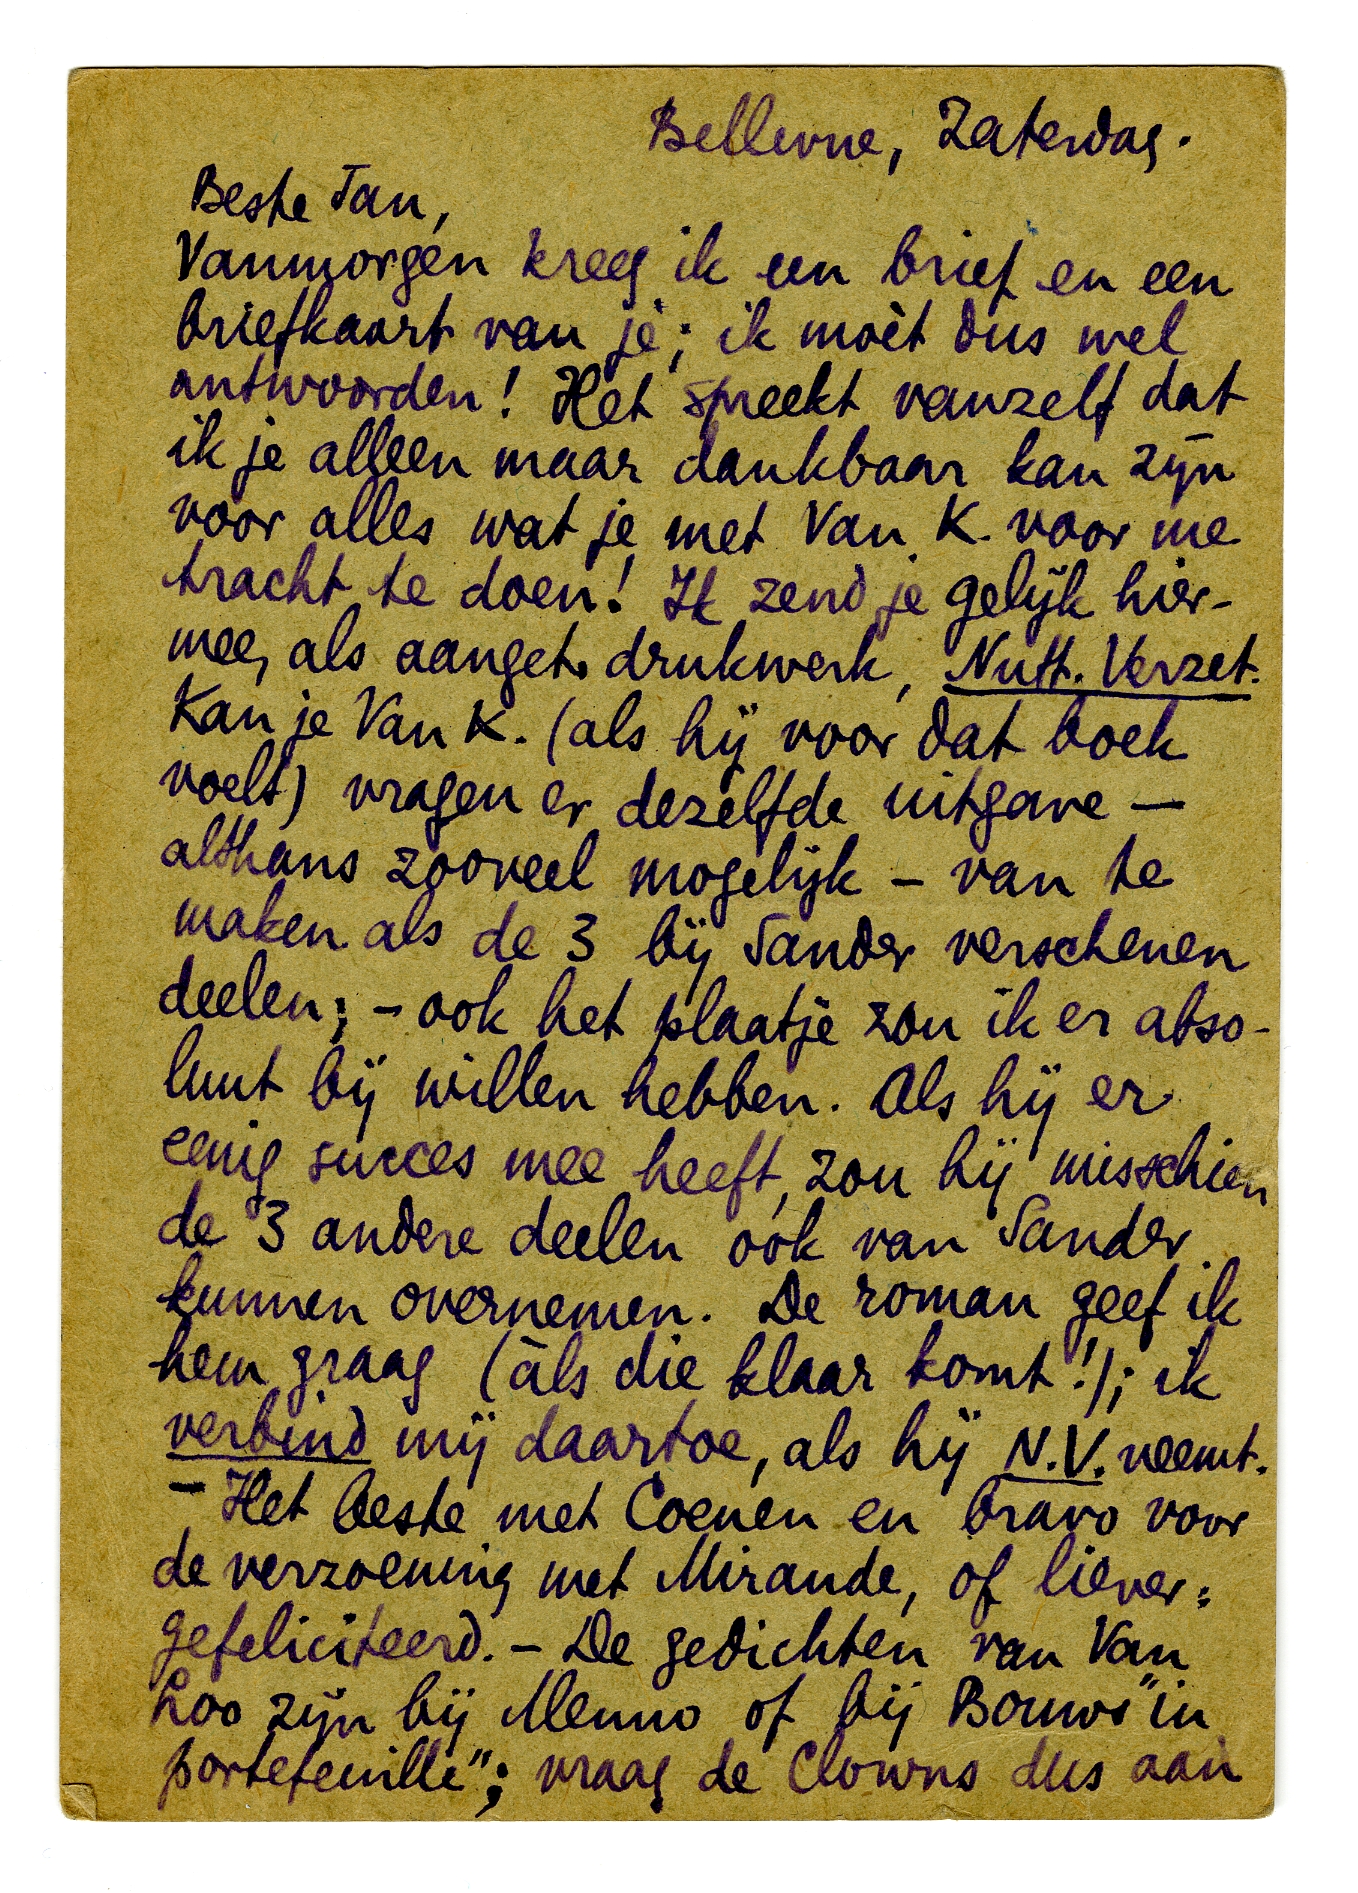 Bellevue, Zaterdag.
Beste Jan,
Vanmorgen kreeg ik een brief en een
briefkaart van je; ik moèt dus wel
antwoorden! Het spreekt vanzelf dat
ik je alleen maar dankbaar kan zijn
voor alles wat je met Van K. voor me
tracht te doen! Ik zend je gelijk hier-
mee, als aanget. drukwerk, Nutt. Verzet.
Kan je Van K. (als hij voor dat boek
voelt) vragen er dezelfde uitgave —
althans zooveel mogelijk — van te
maken als de 3 bij Sander verschenen
deelen; — ook het plaatje zou ik er abso-
luut bij willen hebben. Als hij er
eenig succes mee heeft, zou hij misschien
de 3 andere deelen óók van Sander
kunnen overnemen. De roman geef ik
hem graag (àls die klaar komt!); ik
verbind mij daartoe, als hij N.V. neemt.
— Het beste met Coenen en bravo voor
de verzoening met Mirande, of liever:
gefeliciteerd. — De gedichten van Van
Loo zijn bij Menno of bij Bouws "in
portefeuille"; vraag de Clowns dus aan